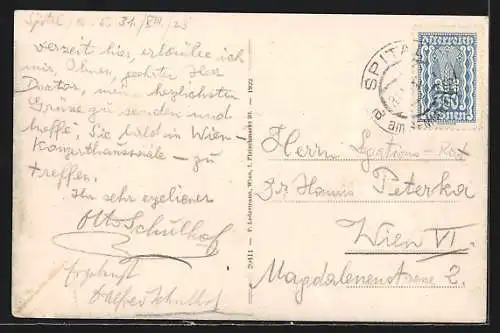 Spital a. S. 31/VIII/23
Derzeit hier, erlaube ich
mir, Ihnen, geehrter Herr
Doktor, meine herzlichsten
Grüsse zu senden und
hoffe, Sie bald in Wien –
Konzerthaussäle – zu
treffen.
Ihr sehr ergebener
Otto Schulhof
Ergebenst
29411 – P. Ledermann, Wien, I. Fleischmarkt 20. – 1922
Österreich
Kronen
SPITAL
am
Herrn Sektions-Rat
Dr. Hanns Peterka
Wien VI.
Magdalenenstrasse 2.